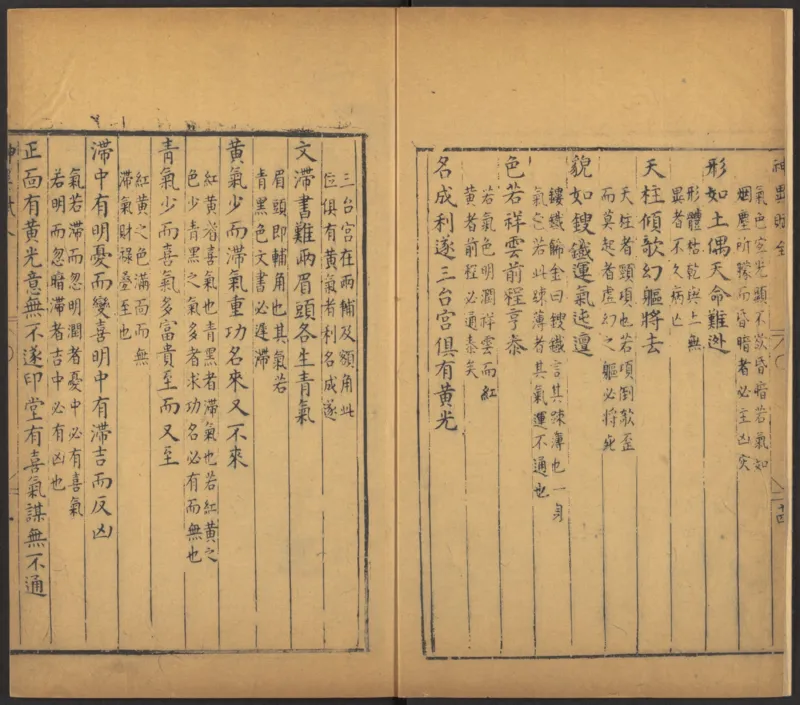 神異賦全
氣色容光類不欲昏暗若氣如
烟塵所矇而昏暗者必主凶灾
形如土偶天命難迯
形體枯乾與土無
異者不久病亡
天柱傾欹幻軀將去
天柱者頸項也若項倒欹歪
而莫起者虛幻之軀必將死
貌如鎪鐵運氣迍邅
鎪鐵餙金曰鎪鐵言其踈薄也一身
氣色若此踈薄者其氣運不通也
色若祥雲前程亨泰
若氣色明潤祥雲而紅
黄者前程必通泰矣
名成利遂三台宫俱有黄光
二十四
三台宫在兩輔及額角此
位俱有黄氣者利名成遂
文滯書難兩眉頭各生青氣
眉頭即輔角也其氣若
青黑色文書必遲滯
黄氣少而滯氣重功名來又不來
紅黄者喜氣也青黑者滯氣也若紅黄之
色少青黑之氣多者求功名必有而無也
青氣少而喜氣多富貴至而又至
紅黄之色滿面而無
滯氣財禄疊至也
滯中有明憂而變喜明中有滯吉而反凶
氣若滯而忽明潤者憂中必有喜氣
若明而忽暗滯者吉中必有凶也
正面有黄光意無不遂印堂有喜氣謀無不通